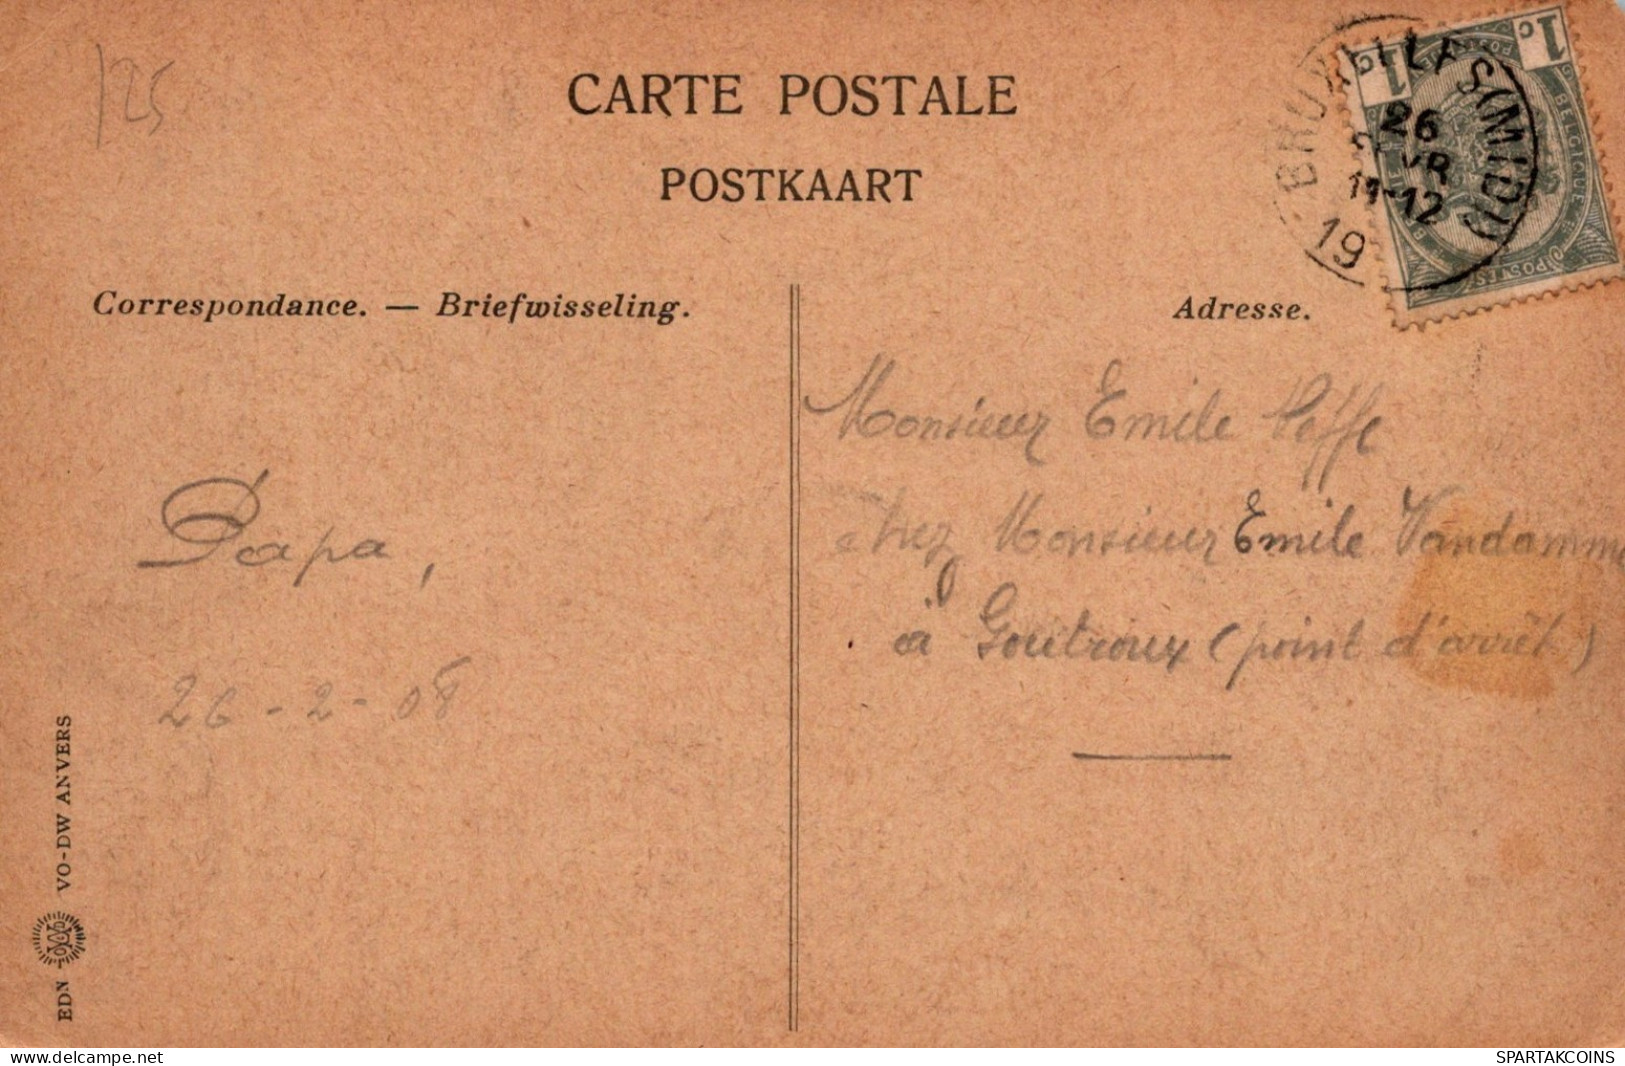 125
CARTE POSTALE
POSTKAART
BRUXELLES (MIDI)
26
VR
11-12
19
1c 1c
Correspondance. — Briefwisseling.
Adresse.
Papa,
26-2-08
Monsieur Emile
chez Monsieur Emile Vandamme
à Goutroux (point d'arrêt)
EDN VO-DW ANVERS
delcampe.net
SPARTAKCOINS